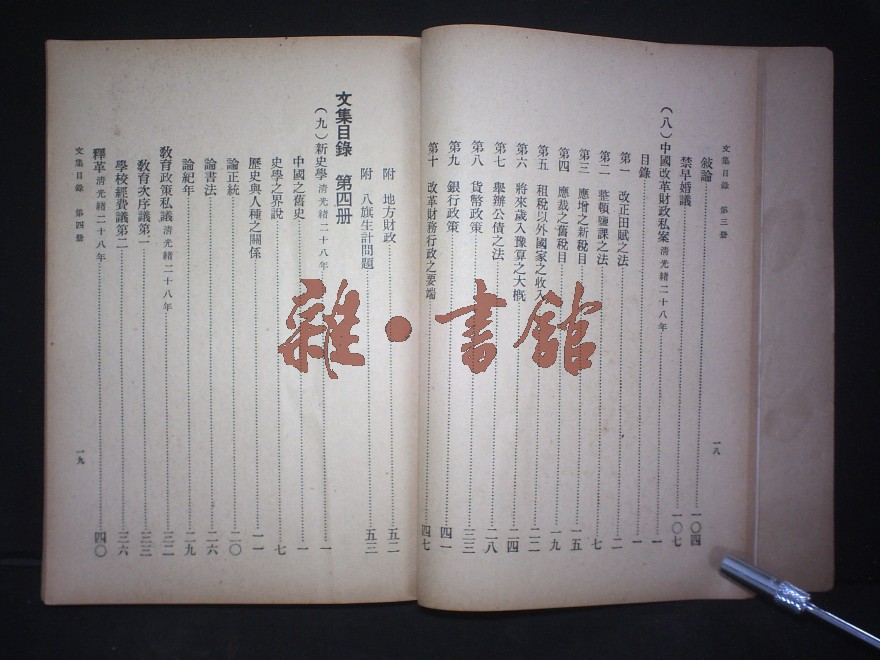 文集目錄　第三册
一八
敍論……一〇四
禁早婚議……一〇七
（八）中國改革財政私案 清光緒二十八年……一
目錄……一
第一　改正田賦之法……二
第二　整頓鹽課之法……七
第三　應增之新稅目……一五
第四　應裁之舊稅目……一九
第五　租稅以外國家之收入……二二
第六　將來歲入豫算之大槪……二四
第七　舉辦公債之法……二八
第八　貨幣政策……三三
第九　銀行政策……四一
第十　改革財務行政之要端……四七
附　地方財政……五二
附　八旗生計問題……五三
文集目錄　第四册
（九）新史學 清光緒二十八年……一
中國之舊史……一
史學之界說……七
歷史與人種之關係……一一
論正統……二〇
論書法……二六
論紀年……二九
敎育政策私議 清光緒二十八年……三二
敎育次序議第一……三三
學校經費議第二……三六
釋革 清光緒二十八年……四〇
文集目錄　第四册
一九
雜·書館